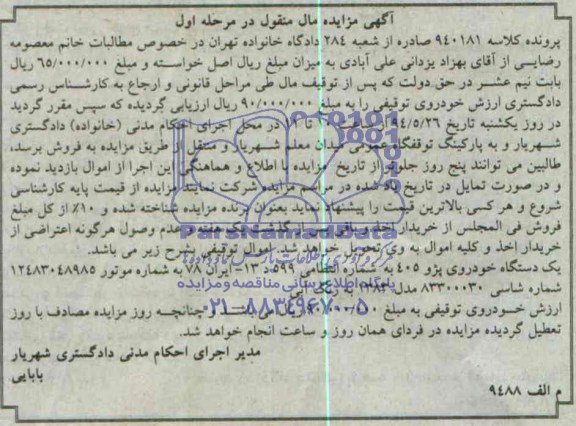 آگهی مزایده مال منقول در مرحله اول
پرونده کلاسه ۹۴۰۱۸۱ صادره از شعبه ۲۸۴ دادگاه خانواده تهران در خصوص مطالبات خانم معصومه
رضایی از آقای بهزاد یزدانی علی آبادی به میزان مبلغ ریال اصل خواسته و مبلغ ۶۵/۰۰۰/۰۰۰ ریال
بابت نیم عشر در حق دولت که پس از توقیف مال طی مراحل قانونی و ارجاع به کارشناس رسمی
دادگستری ارزش خودروی توقیفی را به مبلغ ۹۰/۰۰۰/۰۰۰ ریال ارزیابی گردیده که سپس مقرر گردید
در روز یکشنبه تاریخ ۹۴/۵/۲۶ تا ۱۱ در محل اجرای احکام مدنی (خانواده) دادگستری
شهریار و به پارکینگ توقفگاه عمومی میدان معلم شهریار و منتقل از طریق مزایده به فروش برسد،
طالبین می توانند پنج روز جلوتر از تاریخ مزایده با اطلاع و هماهنگی این اجرا از اموال بازدید نموده
و در صورت تمایل در تاریخ یاد شده در مراسم مزایده شرکت نمایند مزایده از قیمت پایه کارشناسی
شروع و هر کسی بالاترین قیمت را پیشنهاد نماید بعنوان برنده مزایده شناخته شده و ۱۰٪ از کل مبلغ
فروش فی المجلس از خریدار اخذ گذشت یک هفته عدم وصول هرگونه اعتراضی از
خریدار اخذ و کلیه اموال به وی تحویل خواهد شد. اموال توقیفی بشرح زیر می باشد.
یک دستگاه خودروی پژو ۴۰۵ به شماره انتظامی ۵۹۹ د ۱۳-ایران ۷۸ به شماره موتور ۱۲۴۸۳۰۴۸۹۸۵
شماره شاسی ۸۳۳۰۰۰۳۰ مدل ۱۳۸۳ به رنگ
ارزش خودروی توقیفی به مبلغ ریال می چنانچه روز مزایده مصادف با روز
تعطیل گردیده مزایده در فردای همان روز و ساعت انجام خواهد شد.
مدیر اجرای احکام مدنی دادگستری شهریار
بابایی
م الف ۹۴۸۸
ParsNamadData
پایگاه اطلاع رسانی مناقصه و مزایده
۰۲۱-۸۸۳۴۹۶۷۰-۵